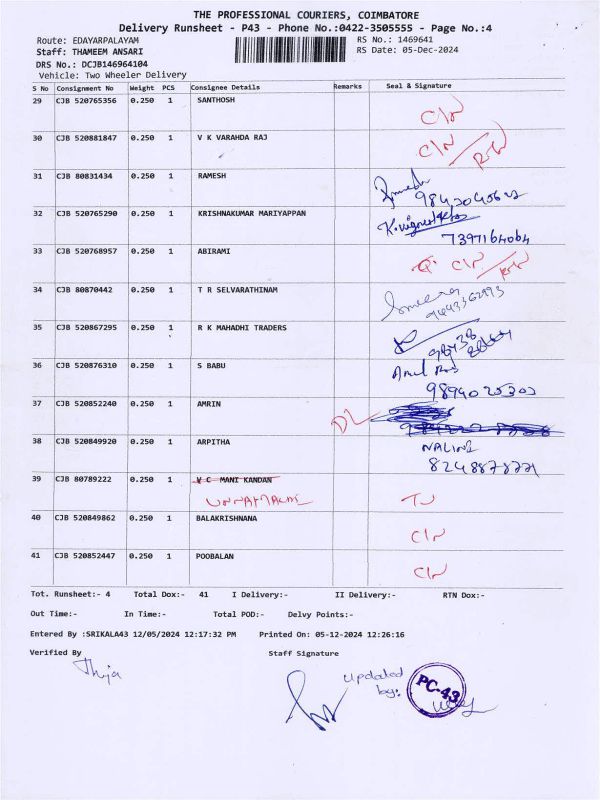 THE PROFESSIONAL COURIERS, COIMBATORE
Delivery Runsheet - P43 - Phone No.:0422-3505555 - Page No.:4
Route: EDAYARPALAYAM RS No.: 1469641
Staff: THAMEEM ANSARI RS Date: 05-Dec-2024
DRS No.: DCJB146964104
Vehicle: Two Wheeler Delivery
S No Consignment No Weight PCS Consignee Details Remarks Seal & Signature
29 CJB 520765356 0.250 1 SANTHOSH C/N
30 CJB 520881847 0.250 1 V K VARAHDA RAJ C/N
31 CJB 80831434 0.250 1 RAMESH
32 CJB 520765290 0.250 1 KRISHNAKUMAR MARIYAPPAN
7397164064
33 CJB 520768957 0.250 1 ABIRAMI C/N
34 CJB 80870442 0.250 1 T R SELVARATHINAM
35 CJB 520867295 0.250 1 R K MAHADHI TRADERS
36 CJB 520876310 0.250 1 S BABU
9894025303
37 CJB 520852240 0.250 1 AMRIN DL
38 CJB 520849920 0.250 1 ARPITHA NALINI
39 CJB 80789222 0.250 1 V C MANI KANDAN
40 CJB 520849862 0.250 1 BALAKRISHNANA C/N
41 CJB 520852447 0.250 1 POOBALAN C/N
Tot. Runsheet:- 4 Total Dox:- 41 I Delivery:- II Delivery:- RTN Dox:-
Out Time:- In Time:- Total POD:- Delvy Points:-
Entered By :SRIKALA43 12/05/2024 12:17:32 PM Printed On: 05-12-2024 12:26:16
Verified By Staff Signature
Thija
updated
by:
PC-43